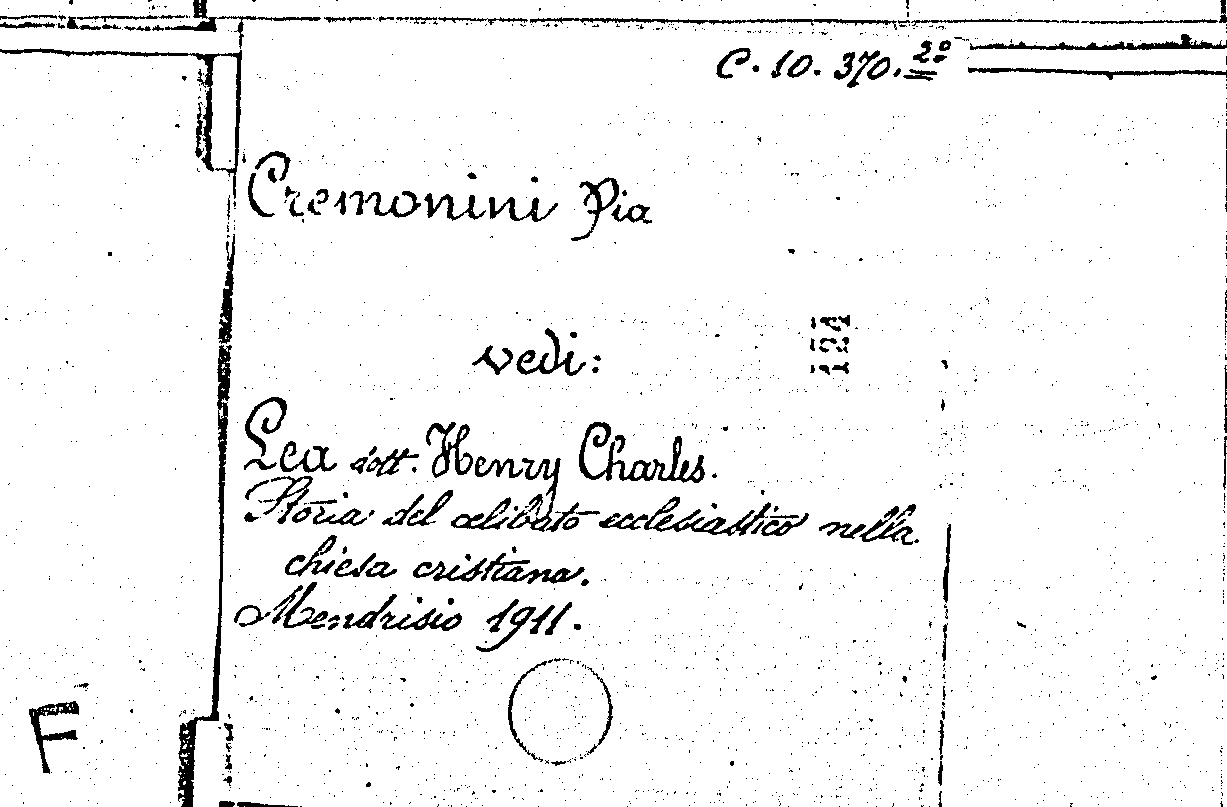 C. 10. 370. 2º
Cremonini Pia
vedi:
124
Lea dott. Henry Charles.
Storia del celibato ecclesiastico nella
chiesa cristiana.
Mendrisio 1911.
F